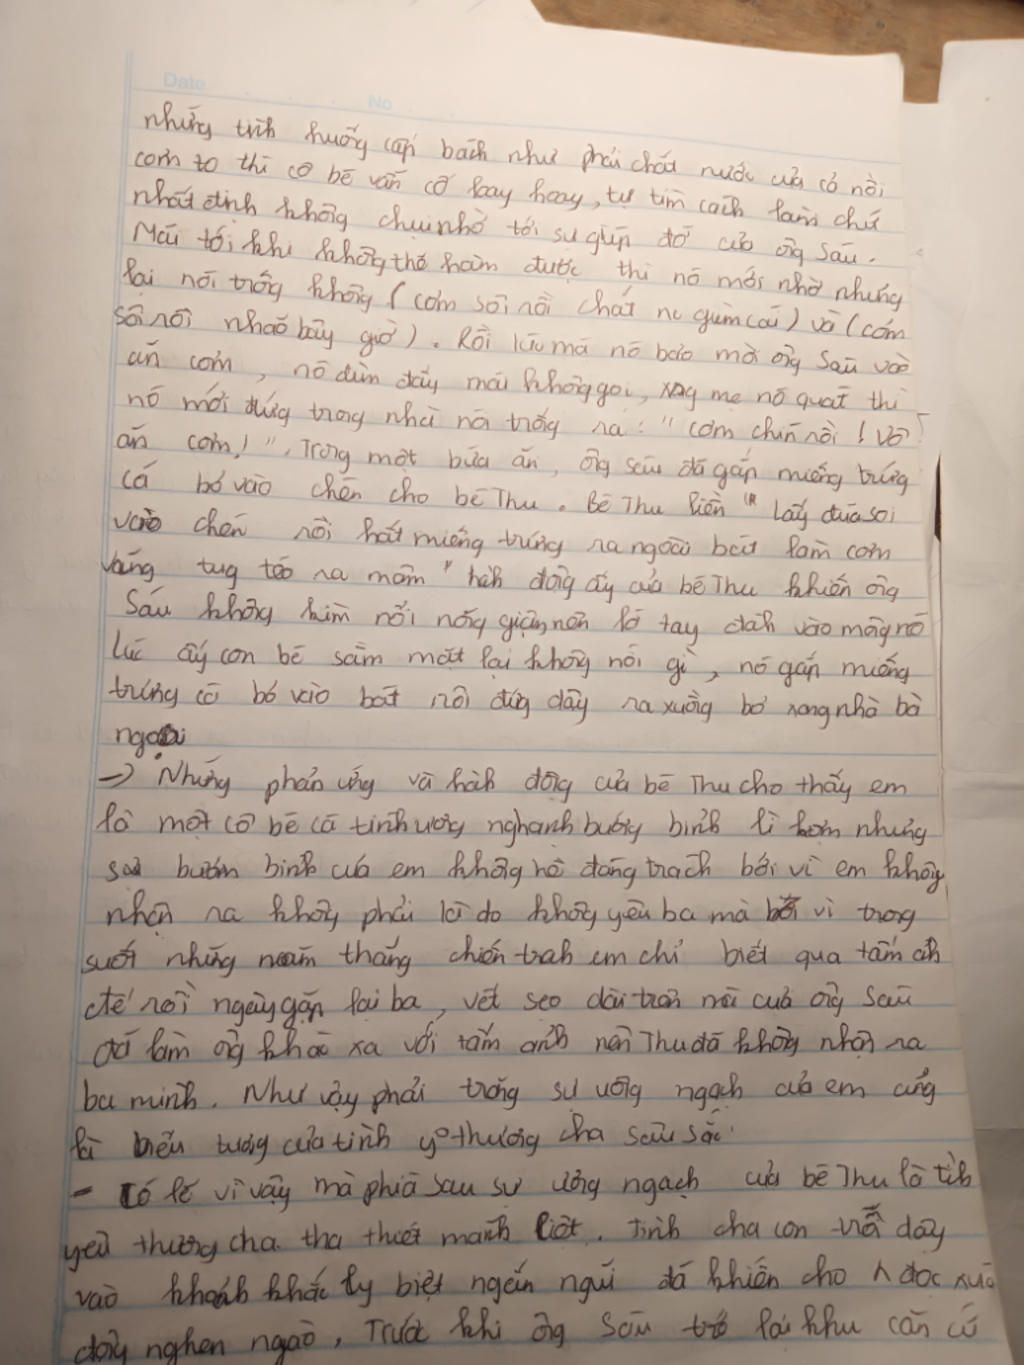 Date No
những tình huống cấp bách như phải chắt nước của cả nồi
cơm to thì cô bé vẫn cố loay hoay, tự tìm cách làm chứ
nhất định không chịu nhờ tới sự giúp đỡ của ông Sáu.
Mãi tới khi không thể làm được thì nó mới nhờ nhưng
lại nói trống không (cơm sôi rồi chắt nc giùm cái) và (cơm
sôi rồi nhão bây giờ). Rồi lúc má nó bảo mời ông Sáu vào
ăn cơm, nó đùn đẩy mãi không gọi, xog mẹ nó quát thì
nó mới đứng trong nhà nói trống ra: "cơm chín rồi! Vô
ăn cơm!". Trong một bữa ăn, ông Sáu đã gắp miếng trứng
cá bỏ vào chén cho bé Thu. Bé Thu liền " lấy đũa soi
vào chén rồi hất miếng trứng ra ngoài bất làm cơm
văng tug téo ra mâm" hành động ấy của bé Thu khiến ông
Sáu không kìm nổi nóng giận nên lỡ tay đánh vào mông nó
Lúc ấy con bé sầm mặt lại không nói gì, nó gắp miếng
trứng cá bỏ vào bát rồi đứng dậy ra xuồng bơ sang nhà bà
ngoại
-> Những phản ứng và hành động của bé Thu cho thấy em
là một cô bé cá tính ương nghạnh bướng bỉnh lì lợm nhưng
sự bướm bỉnh của em không hề đáng trách bởi vì em không
nhận ra không phải là do không yêu ba mà bởi vì trong
suốt những năm tháng chiến tranh em chỉ biết qua tấm ảnh
để rồi ngày gặp lại ba, vết sẹo dài trên má của ông Sáu
đã làm ông khác xa với tấm ảnh nên Thu đã không nhận ra
ba mình. Như vậy phải trong sự ương ngạch của em cũng
là biểu tượng của tình yº thương cha sâu sắc.
- Có lẽ vì vậy mà phía sau sự ương ngạch của bé Thu là tình
yêu thương cha tha thiết mãnh liệt. Tình cha con trỗi dậy
vào khoảnh khắc ly biệt ngắn ngủi đã khiến cho n đọc xúc
động nghẹn ngào, Trước khi ông Sáu trở lại khu căn cứ